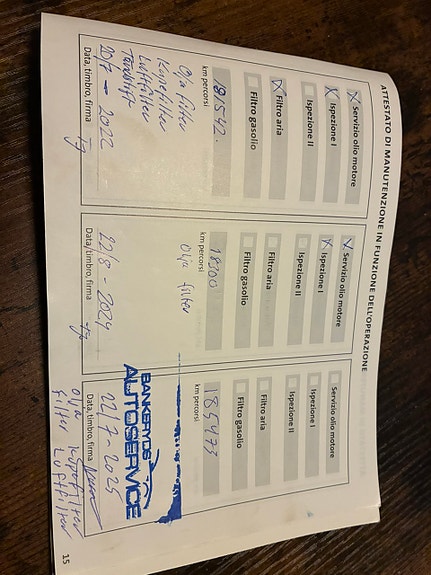 ATTESTATO DI MANUTENZIONE IN FUNZIONE DELL'OPERAZIONE
Servizio olio motore
Ispezione I
Ispezione II
Filtro aria
Filtro gasolio
km percorsi
181542
Olja filter
Kupefilter
Luftfilter
Tändstift
Data, timbro, firma
20/7 - 2022
Servizio olio motore
Ispezione I
Ispezione II
Filtro aria
Filtro gasolio
km percorsi
18300
Olja filter
Data, timbro, firma
22/8 - 2024
Servizio olio motore
Ispezione I
Ispezione II
Filtro aria
Filtro gasolio
km percorsi
185473
BANKERYDS
AUTOSERVICE
22/7 - 2025
Data, timbro, firma
Olja Kupefilter
filter Luftfilter
15